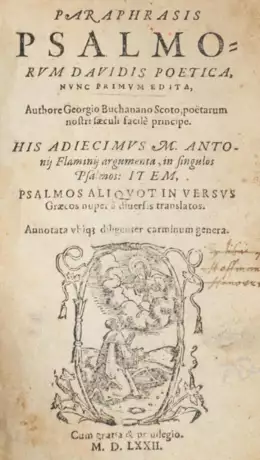 PARAPHRASIS
PSALMO-
RVM DAVIDIS POETICA,
NVNC PRIMVM EDITA,
Authore Georgio Buchanano Scoto, poëtarum
nostri sæculi facilè principe.
HIS ADIECIMVS M. ANTO-
nij Flaminij argumenta, in singulos
Psalmos: ITEM,
PSALMOS ALIQVOT IN VERSVS
Græcos nuper à diuersis translatos.
Annotata vbiq; diligenter carminum genera.
Cum gratia & priuilegio.
M. D. LXXII.